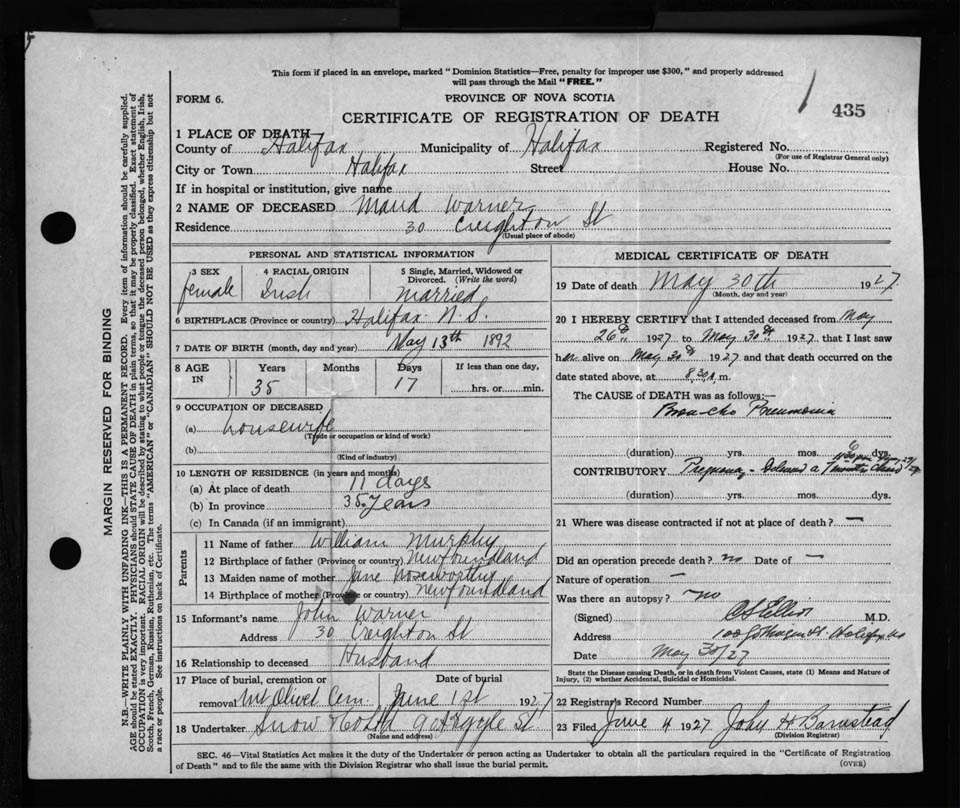 This form if placed in an envelope, marked "Dominion Statistics—Free, penalty for improper use $300," and properly addressed
will pass through the Mail "FREE."
FORM 6.
PROVINCE OF NOVA SCOTIA
435
CERTIFICATE OF REGISTRATION OF DEATH
1 PLACE OF DEATH
County of Halifax Municipality of Halifax Registered No.
(For use of Registrar General only)
City or Town Halifax Street House No.
If in hospital or institution, give name
2 NAME OF DECEASED Maud Warner
Residence 30 Creighton St
(Usual place of abode)
PERSONAL AND STATISTICAL INFORMATION
3 SEX 4 RACIAL ORIGIN 5 Single, Married, Widowed or
Divorced. (Write the word)
female Irish Married
6 BIRTHPLACE (Province or country) Halifax N.S.
7 DATE OF BIRTH (month, day and year) May 13th 1892
8 AGE IN Years Months Days If less than one day,
35 17 hrs. or min.
9 OCCUPATION OF DECEASED
(a) housewife
(Trade or occupation or kind of work)
(b)
(Kind of industry)
10 LENGTH OF RESIDENCE (in years and months)
(a) At place of death days
(b) In province 35 years
(c) In Canada (if an immigrant)
Parents
11 Name of father William Murphy
12 Birthplace of father (Province or country) Newfoundland
13 Maiden name of mother Jane Noseworthy
14 Birthplace of mother (Province or country) Newfoundland
15 Informant's name John Warner
Address 30 Creighton St
16 Relationship to deceased Husband
17 Place of burial, cremation or Date of burial
removal Mt Olivet Cem. June 1st 1927
18 Undertaker Snow & Co Ltd 90 Argyle St
(Name and address)
MEDICAL CERTIFICATE OF DEATH
19 Date of death May 30th 1927
(Month, day and year)
20 I HEREBY CERTIFY that I attended deceased from May
26th 1927 to May 30th 1927 that I last saw
her alive on May 30th 1927 and that death occurred on the
date stated above, at 8.30 m.
The CAUSE of DEATH was as follows:—
Broncho Pneumonia
(duration) yrs. mos. 6 dys.
CONTRIBUTORY Pregnancy - a
(duration) yrs. mos. dys.
21 Where was disease contracted if not at place of death? —
Did an operation precede death? no Date of —
Nature of operation —
Was there an autopsy? no
(Signed) M.D.
Address Halifax
Date May 30/27
State the Disease causing Death, or in death from Violent Causes, state (1) Means and Nature of
Injury, (2) whether Accidental, Suicidal or Homicidal.
22 Registrar's Record Number
23 Filed June 4 1927 John H Barnstead
(Division Registrar)
SEC. 46—Vital Statistics Act makes it the duty of the Undertaker or person acting as Undertaker to obtain all the particulars required in the "Certificate of Registration
of Death" and to file the same with the Division Registrar who shall issue the burial permit.
(OVER)
MARGIN RESERVED FOR BINDING
N.B.—WRITE PLAINLY WITH UNFADING INK—THIS IS A PERMANENT RECORD. Every item of information should be carefully supplied.
AGE should be stated EXACTLY. PHYSICIANS should STATE CAUSE OF DEATH in plain terms, so that it may be properly classified. Exact statement of
OCCUPATION is very important. RACIAL ORIGIN will be described by stating to what people or tongue the deceased person belonged, whether English, Irish,
Scotch, French, German, Russian, Ruthenian, etc. The terms "AMERICAN" or "CANADIAN" SHOULD NOT BE USED as they express citizenship but not
a race or people. See instructions on back of Certificate.